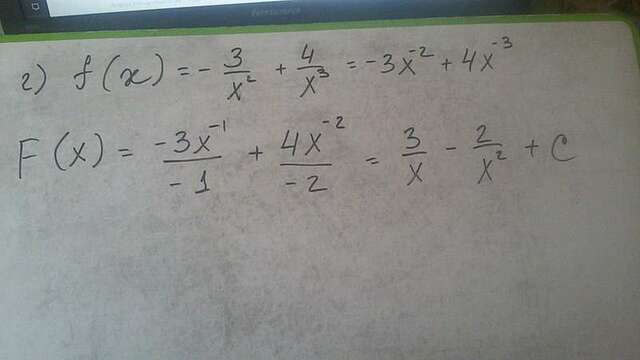 г) f(x) = - 3/x² + 4/x³ = -3x⁻² + 4x⁻³
F(x) = -3x⁻¹/-1 + 4x⁻²/-2 = 3/x - 2/x² + C